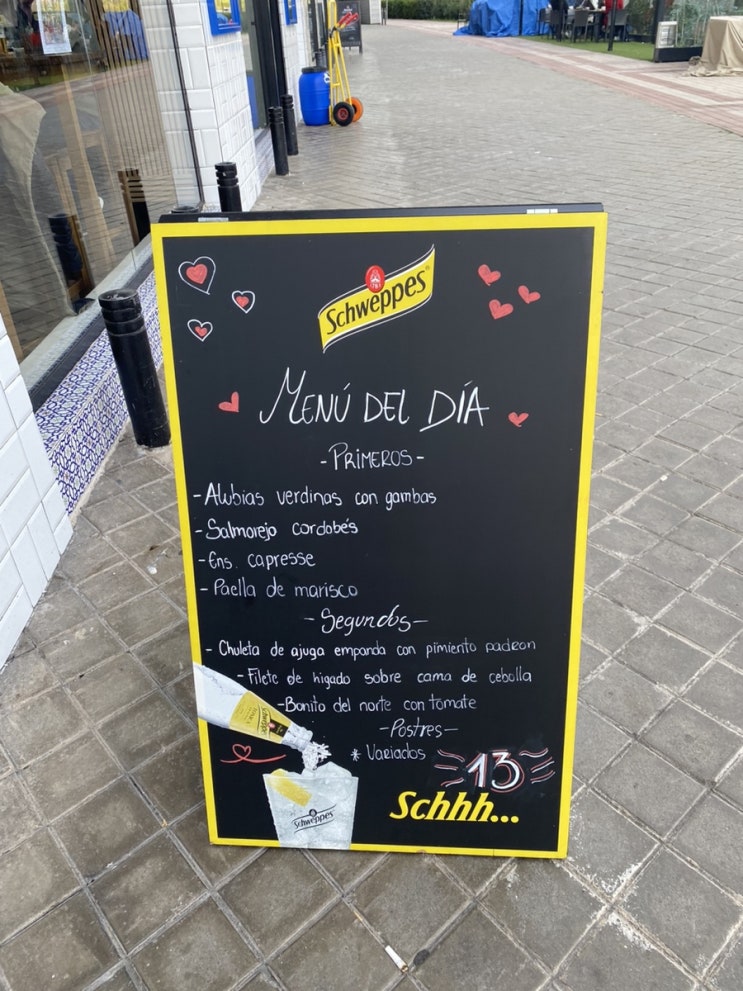 Schweppes
MENÚ DEL DÍA
-PRIMEROS-
-Alubias verdinas con gambas
-Salmorejo cordobés
-Ens. capresse
-Paella de marisco
-Segundos-
-Chuleta de ajuga empanda con pimiento padron
-Filete de higado sobre cama de cebolla
-Bonito del norte con tomate
-Postres-
* Variados
13
Schhh...
Schweppes